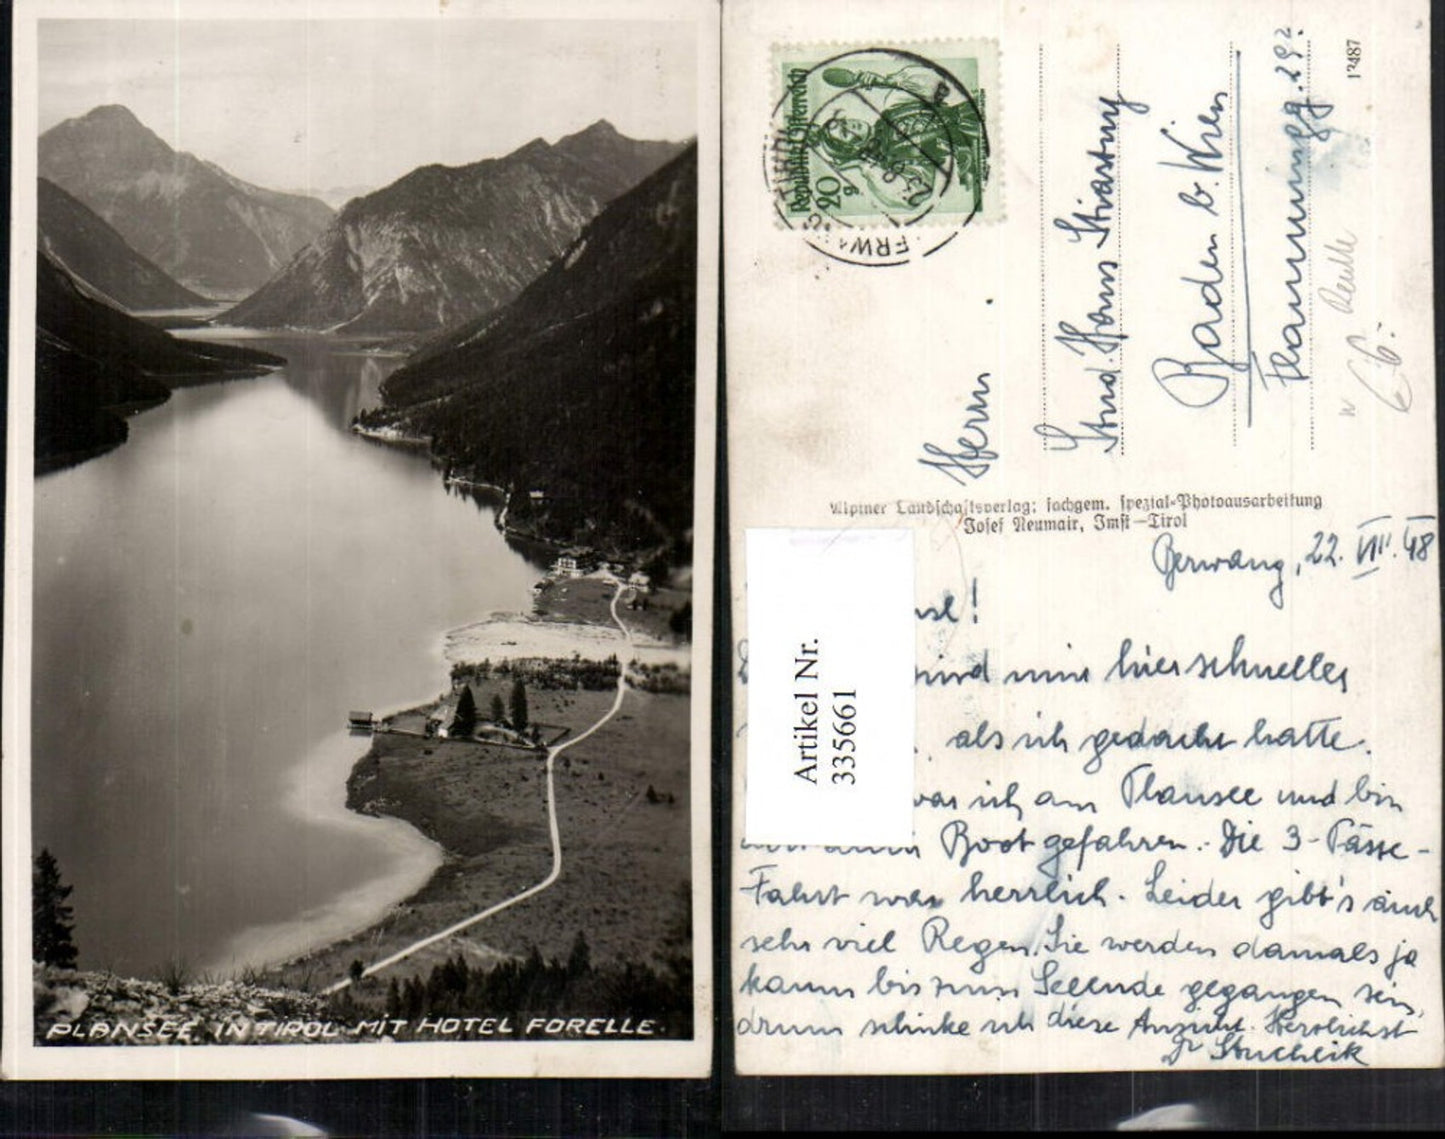 PLANSEE IN TIROL MIT HOTEL FORELLE.
Republik Österreich
20
g
Herrn
Stud. Hans Stiastny
Baden b. Wien
13487
Alpiner Landschaftsverlag; fachgem. spezial-Photoausarbeitung
Josef Neumair, Imst—Tirol
Berwang, 22. VIII. 48
Artikel Nr.
335661
wird mir hier schneller
als ich gedacht hatte.
war ich am Plansee und bin
Boot gefahren. Die 3-Pässe-
Fahrt war herrlich. Leider gibt's auch
sehr viel Regen. Sie werden damals ja
kaum bis zum Seeende gegangen sein,
drum schicke ich diese Ansicht. Herzlichst